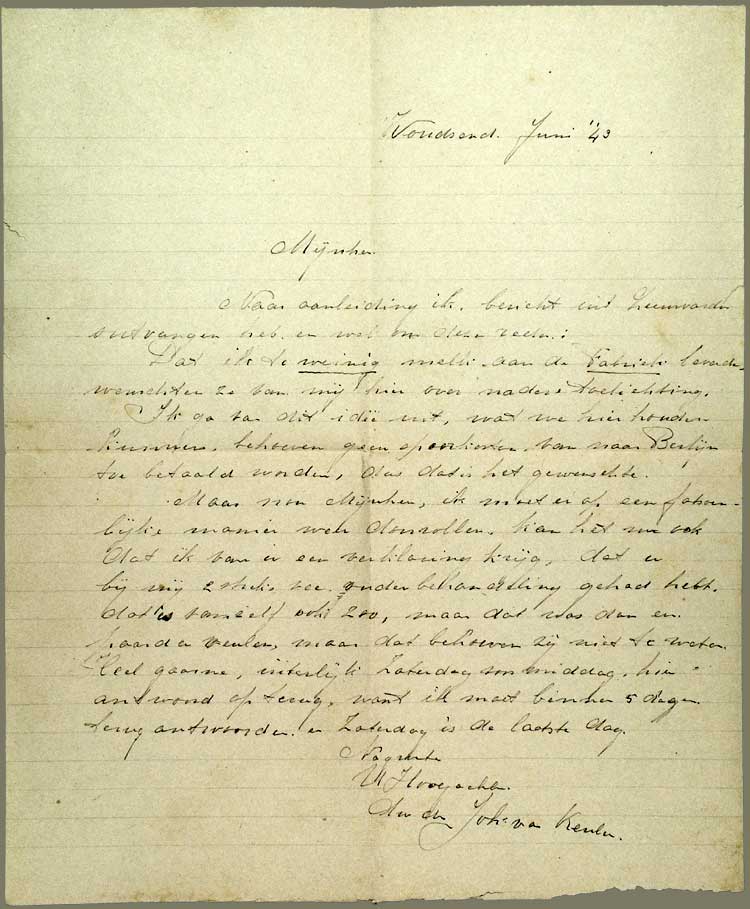 Woudsend. Juni '43
Mijnheer.
Naar aanleiding ik, bericht uit Leeuwarden
ontvangen heb. en wel om deze reden:
Dat ik te weinig melk aan de Fabriek leverde
wenschten ze van mij hier over nadere toelichting.
Ik ga van dit idië uit, wat we hier houden
kunnen, behoeven geen spoorkosten van naar Berlijn
toe betaald worden, dus dat is het gewenschte.
Maar nou Mijnheer, ik moet er op een fatsoen-
lijke manier weer doorrollen. kan het nu ook
dat ik van U een verklaring krijg, dat U
bij mij 2 stuks vee onder behandeling gehad hebt.
dat is vanzelf ook zoo, maar dat was dan en
paard en veulen, maar dat behoeven zij niet te weten.
Heel gaarne, uiterlijk Zaterdag middag, hier
antwoord op terug, want ik moet binnen 5 dagen
terug antwoorden. en Zaterdag is de laatste dag.
Hoogachtend
Joh. van Keulen.